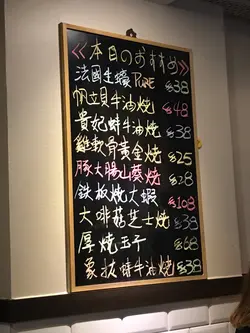 ≪本日のおすすめ≫
法國生蠔 PURE $38
帆立貝牛油燒 $48
貴妃蚌牛油燒 $38
雞軟骨黃金燒 $25
豚大腸山葵燒 $28
鉄板燒大蝦 $108
大啡菇芝士燒 $38
厚燒玉子 $68
象拔蚌牛油燒 $38